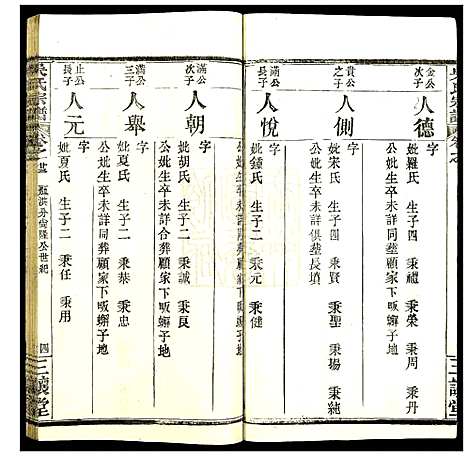 金公次子
人德
字
妣羅氏 生子四 秉禮 秉榮 秉周 秉丹
公妣生卒未詳同墓顧家下畈螄子地
貴公之子
人側
字
妣宋氏 生子四 秉賢 秉聖 秉場 秉純
公妣生卒未詳俱葬長墳
滿公長子
人悅
字
妣鍾氏 生子二 秉元 秉健
公妣生卒未詳
滿公次子
人朝
字
妣胡氏 生子二 秉誠 秉良
公妣生卒未詳合葬顧家下畈螄子地
滿公三子
人舉
字
妣夏氏 生子二 秉恭 秉忠
公妣生卒未詳同葬顧家下畈螄子地
止公長子
人元
字
妣夏氏 生子二 秉任 秉用
吳氏宗譜
卷之
公世紀
四
三讓堂